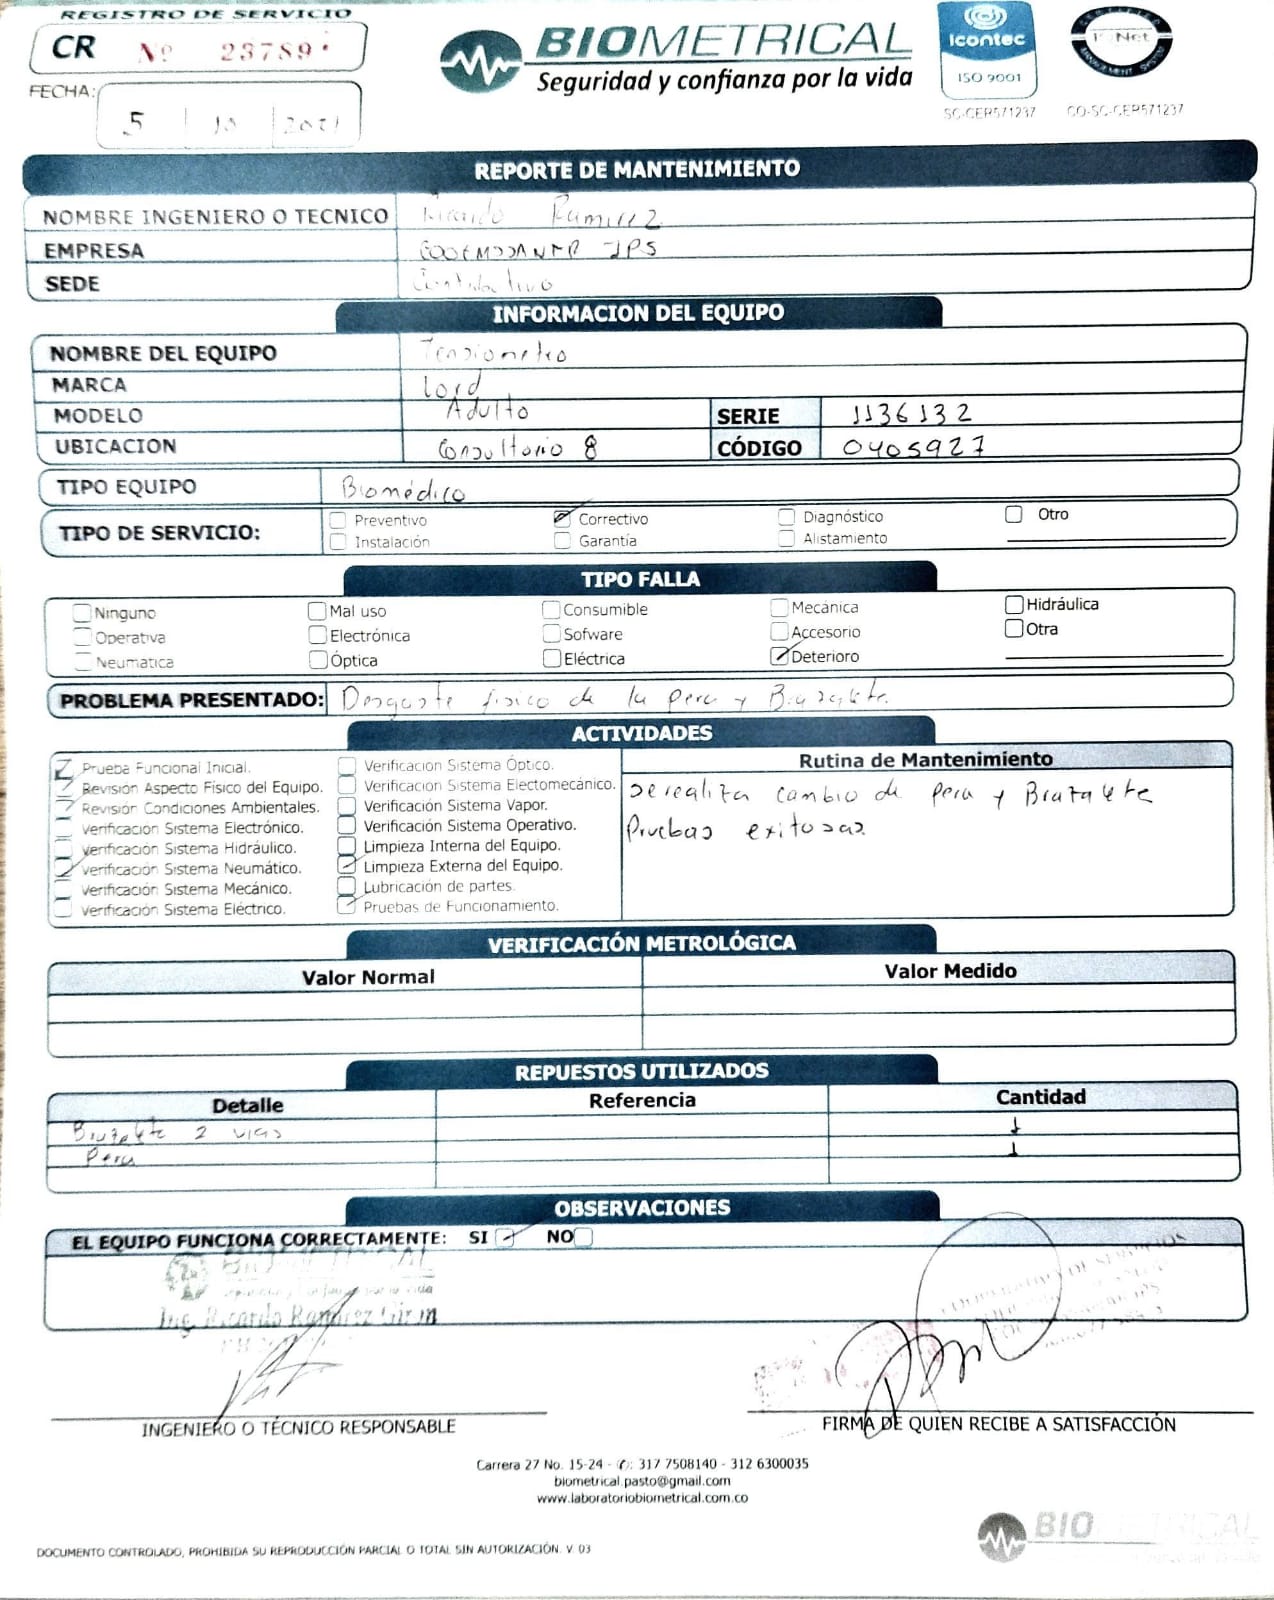 REGISTRO DE SERVICIO
CR Nº 23789
FECHA: 5 10 2021
BIOMETRICAL
Seguridad y confianza por la vida
Icontec
ISO 9001
SC-CER571237
CERTIFIED
IQNet
MANAGEMENT SYSTEM
CO-SC-CER571237
REPORTE DE MANTENIMIENTO
NOMBRE INGENIERO O TECNICO Ricardo Ramirez
EMPRESA IPS
SEDE Contributivo
INFORMACION DEL EQUIPO
NOMBRE DEL EQUIPO Tensiometro
MARCA Lord
MODELO Adulto SERIE 1136132
UBICACION Consultorio 8 CÓDIGO 0405927
TIPO EQUIPO Biomédico
TIPO DE SERVICIO: Preventivo Correctivo Diagnóstico Otro
Instalación Garantía Alistamiento
TIPO FALLA
Ninguno Mal uso Consumible Mecánica Hidráulica
Operativa Electrónica Sofware Accesorio Otra
Neumatica Óptica Eléctrica Deterioro
PROBLEMA PRESENTADO: Desgaste fisico de la pera y Brazalete.
ACTIVIDADES
Prueba Funcional Inicial.
Revisión Aspecto Fisico del Equipo.
Revisión Condiciones Ambientales.
Verificación Sistema Electrónico.
Verificación Sistema Hidráulico.
Verificación Sistema Neumático.
Verificación Sistema Mecánico.
Verificación Sistema Eléctrico.
Verificacion Sistema Óptico.
Verificacion Sistema Electomecánico.
Verificación Sistema Vapor.
Verificación Sistema Operativo.
Limpieza Interna del Equipo.
Limpieza Externa del Equipo.
Lubricación de partes.
Pruebas de Funcionamiento.
Rutina de Mantenimiento
Se realiza cambio de pera y Brazalete
Pruebas exitosas
VERIFICACIÓN METROLÓGICA
Valor Normal Valor Medido
REPUESTOS UTILIZADOS
Detalle Referencia Cantidad
Brazalete 2 vias 1
Pera 1
OBSERVACIONES
EL EQUIPO FUNCIONA CORRECTAMENTE: SI NO
BIOMETRICAL
Seguridad y Confianza por la vida
Ing. Ricardo Ramírez Girón
DE SERVICIOS
INGENIERO O TÉCNICO RESPONSABLE
FIRMA DE QUIEN RECIBE A SATISFACCIÓN
Carrera 27 No. 15-24 - ✆: 317 7508140 - 312 6300035
biometrical.pasto@gmail.com
www.laboratoriobiometrical.com.co
DOCUMENTO CONTROLADO, PROHIBIDA SU REPRODUCCIÓN PARCIAL O TOTAL SIN AUTORIZACIÓN. V 03
BIOMETRICAL